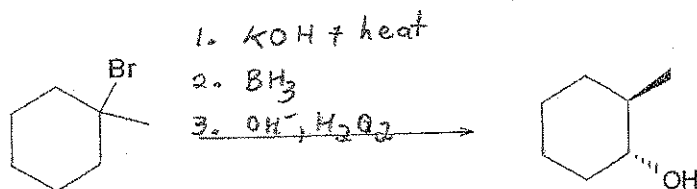 1. KOH + heat
Br
2. BH3
3. OH-, H2O2
OH